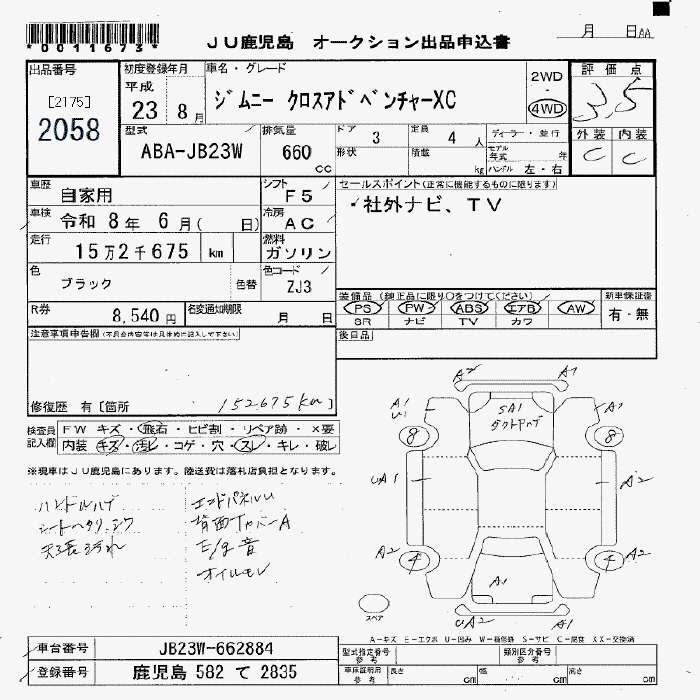 *0011673*
JU鹿児島 オークション出品申込書
月 日AA
出品番号
[2175]
2058
初度登録年月
平成
23 8月
車名・グレード
ジムニー クロスアドベンチャーXC
2WD
・
4WD
評価点
3.5
外装 内装
C C
型式
ABA-JB23W
排気量
660
cc
ドア 3
定員 4 人
形状
積載 kg
ディーラー・並行
モデル年式 年
ハンドル 左・右
車歴
自家用
シフト
F5
車検
令和 8年 6月( 日)
冷房
AC
走行
15万2千675 km
燃料
ガソリン
色
ブラック
色替
色コード
ZJ3
R券
8,540円
名変通知期限
月 日
セールスポイント(正常に機能するものに限ります)
・社外ナビ、TV
装備品(純正品に限り○をつけてください)
PS PW ABS エアB AW
SR ナビ TV カワ
新車保証書
有・無
後日品
注意事項申告欄
修復歴 有〔箇所 152675km〕
検査員記入欄
FW キズ・飛石・ヒビ割・リペア跡・X要
内装 キズ・汚レ・コゲ・穴・スレ・キレ・破レ
※現車はJU鹿児島にあります。陸送費は落札店負担となります。
ハンドルハゲ
シートヘタリ、シワ
天張汚れ
エンドパネルU
背面TカバーA
E/g音
オイルモレ
A2 A1
A1
U1
A1
SA1
ダクトデカプ
8 8
UA1 A2
A2 A2
4 4
A1
UA2 A1
スペア
A-キズ E-エクボ U-凹み W-補修跡 S-サビ C-腐食 XX-交換済
車台番号
JB23W-662884
登録番号
鹿児島 582 て 2835
型式指定番号
参考
類別区分番号
参考
車庫証明用
参考
長さ cm
幅 cm
高さ cm